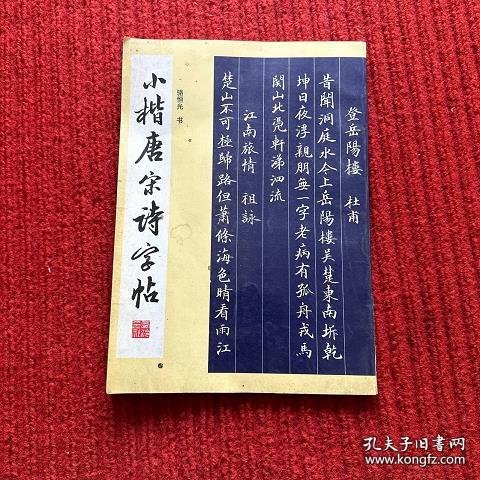 小楷唐宋诗字帖
骆恒光 书
登岳陽樓 杜甫
昔聞洞庭水今上岳陽樓吴楚東南坼乾
坤日夜浮親朋無一字老病有孤舟戎馬
関山北凭軒涕泗流
江南旅情 祖詠
楚山不可極歸路但蕭條海色晴看雨江
孔夫子旧书网
www.kongfz.com